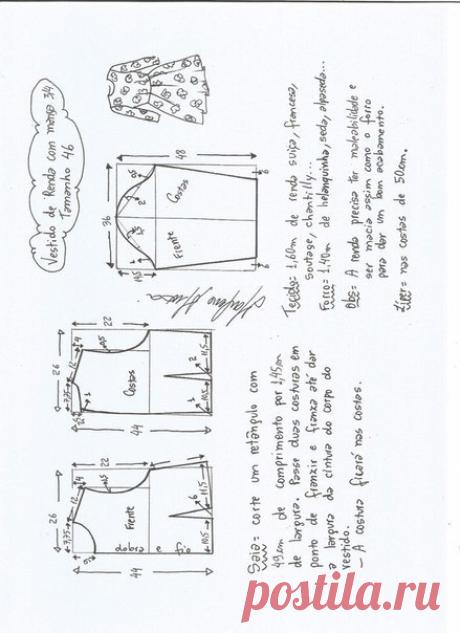 Vestido de Renda com manga 3/4
Tamanho 46
36
48
Frente
Costas
11,5
6
6
Tecido= 1,60m de renda suíça, francesa,
soutage, chantilly...
Forro= 1,40m de helanquinha, seda,
Obs= A renda precisa ter maleabilidade e
ser macia assim como o forro
para dar um bom acabamento.
Zíper= nas costas de 50cm.
26
7,75
12
4
22
44
Costas
2
10,5
11,5
26
7,75
12
4
22
44
Frente
6
10,5
11,5
Saia= corte um retângulo com
49cm de comprimento por 1,45m
de largura. Passe duas costuras em
ponto de franzir e franza até dar
a largura da cintura do corpo do
vestido.
- A costura ficará nas costas.
postila.ru